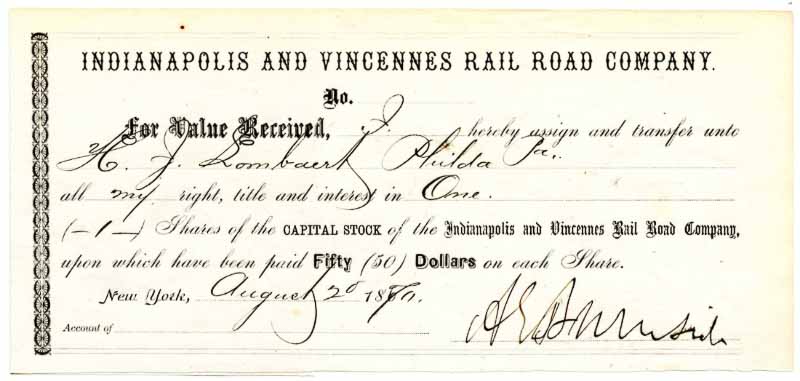 INDIANAPOLIS AND VINCENNES RAIL ROAD COMPANY.
No.
For Value Received, I hereby assign and transfer unto
H. J. Lombaert Philda Pa.
all my right, title and interest in One.
(—1—) Shares of the CAPITAL STOCK of the Indianapolis and Vincennes Rail Road Company,
upon which have been paid Fifty (50) Dollars on each Share.
New York, August 20 1870.
Account of
A E Burnside